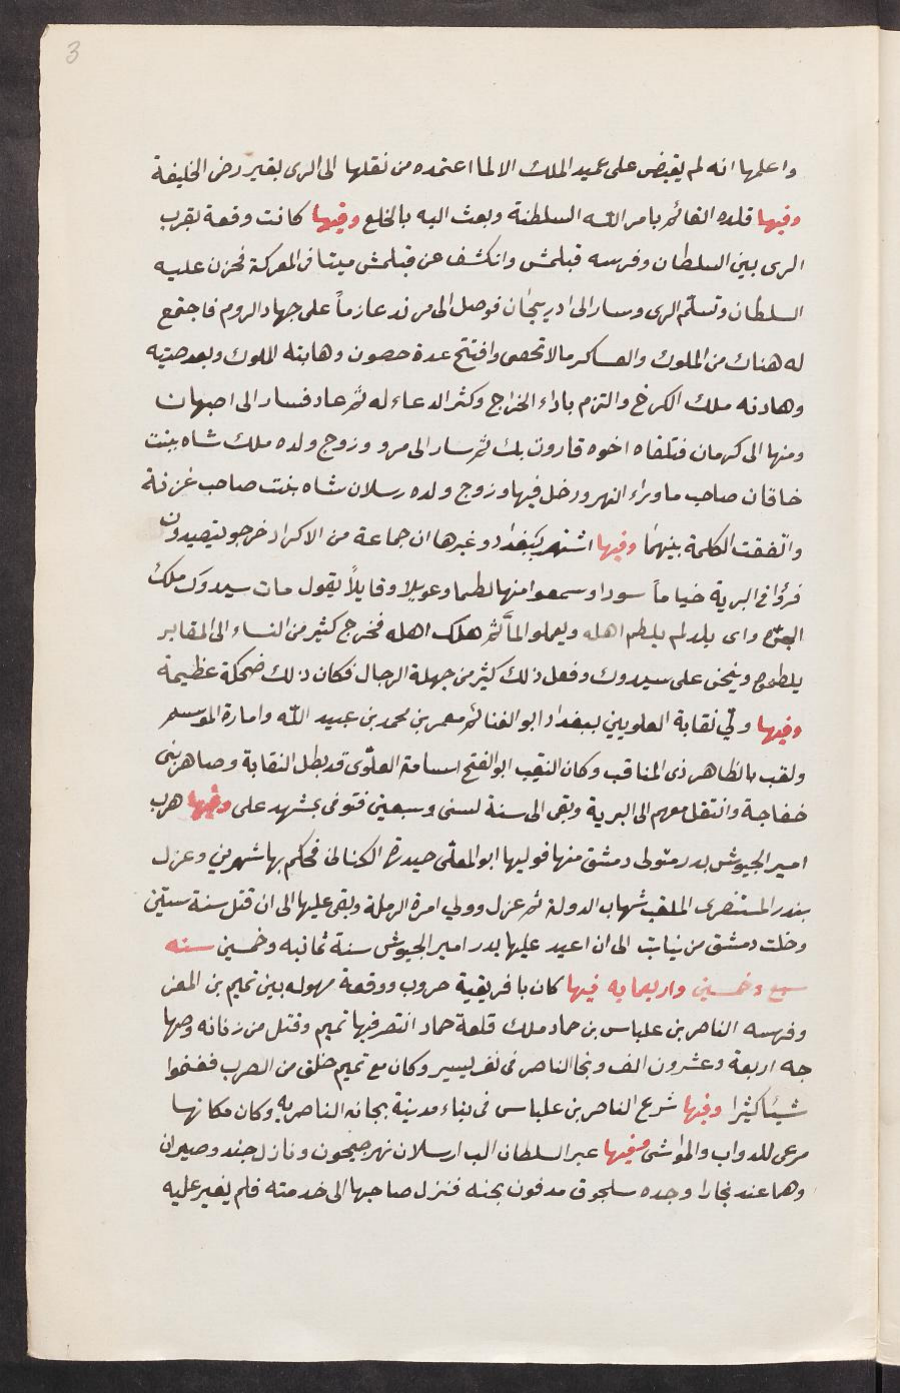 3
واعلمها انه لم يقبض على عميد الملك الا لما اعتمده من نقلها الى الرى بغير رضى الخليفة
وفيها قلده القائم بامر الله السلطنة وبعث اليه بالخلع وفيها كانت وقعة بقرب
الرى بين السلطان وقريبه قتلمش وانكشف عن قتلمش ميتا فى المعركة فحزن عليه
السلطان وتسلّم الرى وسار الى ادربيجان فوصل الى مرند عازماً على جهاد الروم فاجتمع
له هناك من الملوك والعساكر مالا تحصى وافتتح عدة حصون وهابته الملوك وبعد صيته
وهادنه ملك الكرخ والتزم باداء الخراج وكثر الدعاء له ثم عاد فسار الى اصبهان
ومنها الى كرمان فتلقاه اخوه قاروت بك ثم سار الى مرو وزوج ولده ملك شاه ببنت
خاقان صاحب ماوراء النهر ودخل فيها وزوج ولده رسلان شاه بنت صاحب غزنة
واتفقت الكلمة بينهما وفيها اشتهر ببغداد وغيرها ان جماعة من الاكراد خرجو يتصيدون
فرؤا فى البرية خياماً سودا وسمعوا منها لطما وعويلا وقايلاً يقول مات سيدوك ملك
الجنّ واى بلد لم يلطم اهله ويعملو المأتم هلك اهله فخرج كثير من النساء الى المقابر
يلطمن وينحن على سيدوك وفعل ذلك كثير من جهلة الرجال فكان ذلك ضحكة عظيمة
وفيها ولّي نقابة العلويين ببغداد ابو الغنائم معمر بن محمد بن عبيد الله وامارة الموسم
ولقب بالظاهر ذى المناقب وكان النقيب ابو الفتح اسامة العلوى قد بطل النقابة وصاهر بنى
خفاجة وانتقل معهم الى البرية وبقى الى سنة اسنى وسبعين فتوفى بمشهد على وفيها هرب
امير الجيوش بدر متولى دمشق منها فوليها ابو المعلّى حيدرة الكنانى فحكم بها شهرين وعزل
بندر المستنصرى الملقب شهاب الدولة ثم عزل وولي امرة الرملة وبقى عليها الى ان قتل سنة ستّين
وخلت دمشق من نيابت الى ان اعيد عليها بدر امير الجيوش سنة ثمانيه وخمسين سنه
سبع وخمسين واربعمايه فيها كان بافريقية حروب ووقعة مهوله بين تميم بن المعز
وقريبه الناصر بن علباس بن حماد ملك قلعة حماد انتصر فيها تميم وقتل من زناته وصنها
جه اربعة وعشرون الف ونجا الناصر فى نفر يسير وكان مع تميم خلق من العرب فغنموا
شيئا كثيرا وفيها شرع الناصر بن علباس فى بناء مدينة بجانه الناصريه وكان مكانها
مرعى للدواب والمواشى وفيها عبر السلطان الب ارسلان نهر جيحون ونازل جند وصيران
وهما عند بخارا وجده سلجوق مدفون بجنه فنزل صاحبها الى خدمته فلم يغير عليه